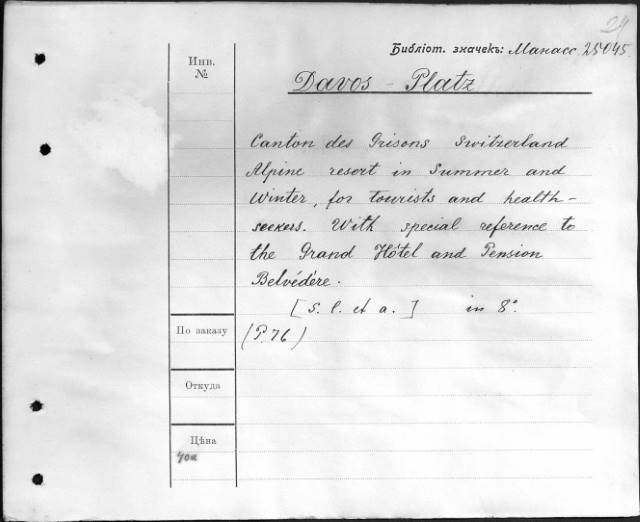 24
Библіот. значекъ: Манасс. 25045.
Инв.
№
Davos - Platz
Canton des Grisons Switzerland
Alpine resort in Summer and
Winter, for tourists and health-
seekers. With special reference to
the Grand Hôtel and Pension
Belvédère.
[S. l. et a.] in 8°.
По заказу
(P. 76)
Откуда
Цѣна